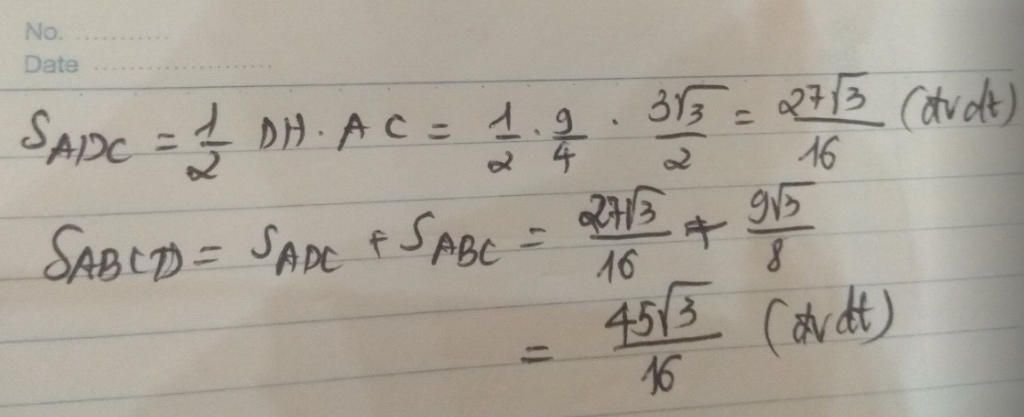 No. ............
Date ......................
S_ADC = 1/2 DH · AC = 1/2 · 9/4 · 3√3/2 = 27√3/16 (đvdt)
S_ABCD = S_ADC + S_ABC = 27√3/16 + 9√3/8
= 45√3/16 (đvdt)